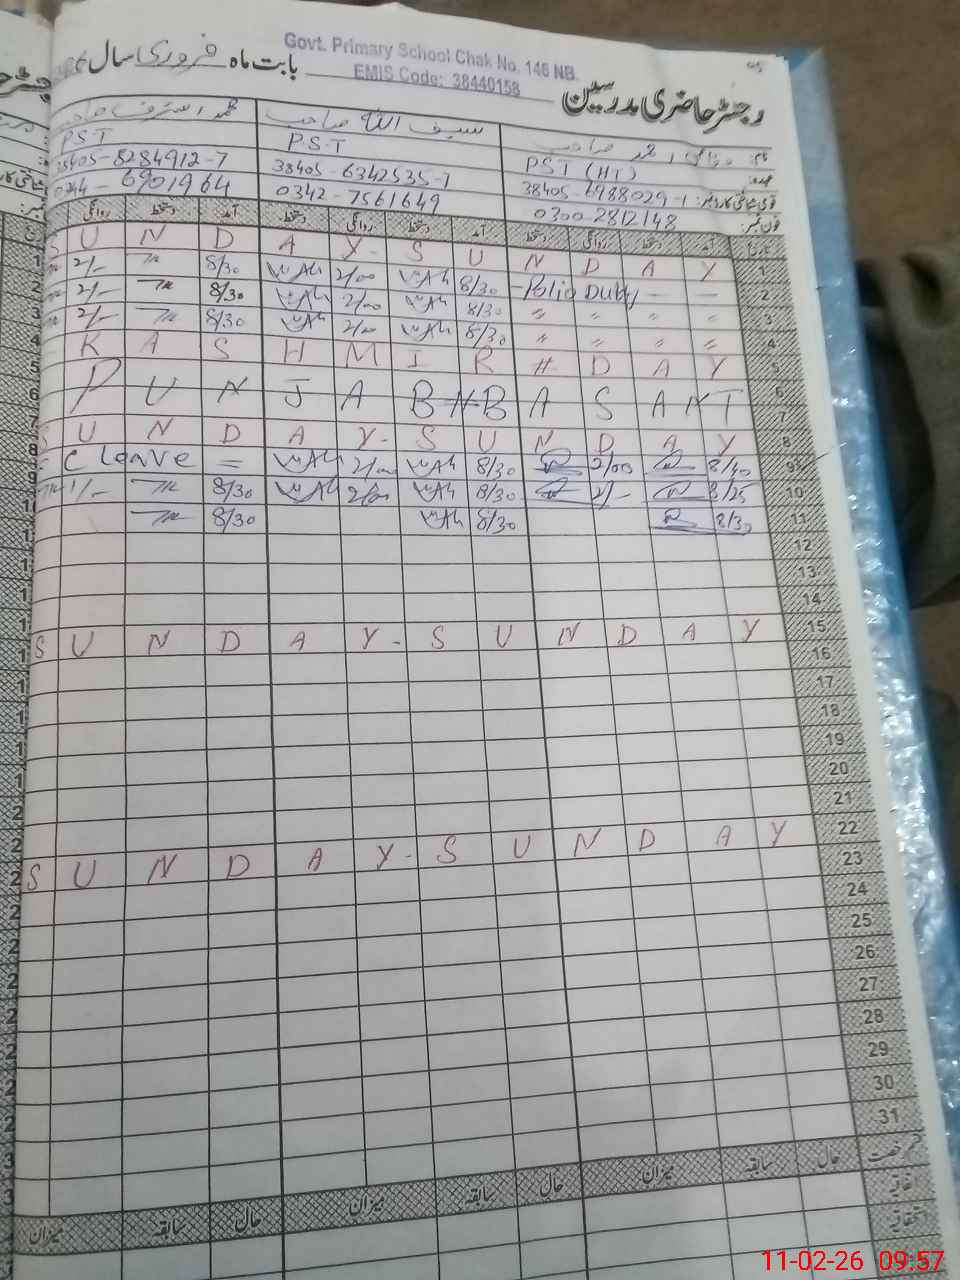 Govt. Primary School Chak No. 146 NB.
EMIS Code: 38440158
رجسٹر حاضری مدرسین بابت ماہ فروری سال
سیف اللہ صاحب
PST (HT) P.S.T PST
38405-6988029-1 38405-6342535-7 38405-8284912-7
0300-2812148 0342-7561649 0244-6901964
آمد دستخط روانگی دستخط آمد دستخط روانگی دستخط آمد دستخط روانگی
S U N D A Y - S U N D A Y 1
2/- 8/30 2/00 8/30 - Polio Duty - - 2
2/- 8/30 2/00 8/30 " " " " 3
2/- 8/30 2/00 8/30 " " " " 4
K A S H M I R # D A Y 5
P U N J A B N B A S A N T 6
7
S U N D A Y - S U N D A Y 8
C Leave = 2/00 8/30 2/00 8/40 9
1/- 8/30 2/00 8/30 2/- 8/25 10
8/30 8/30 8/30 11
12
13
14
S U N D A Y - S U N D A Y 15
16
17
18
19
20
21
S U N D A Y - S U N D A Y 22
23
24
25
26
27
28
29
30
31
حال سابقہ میزان حال سابقہ میزان حال سابقہ میزان
اتفاقیہ
11-02-26 09:57